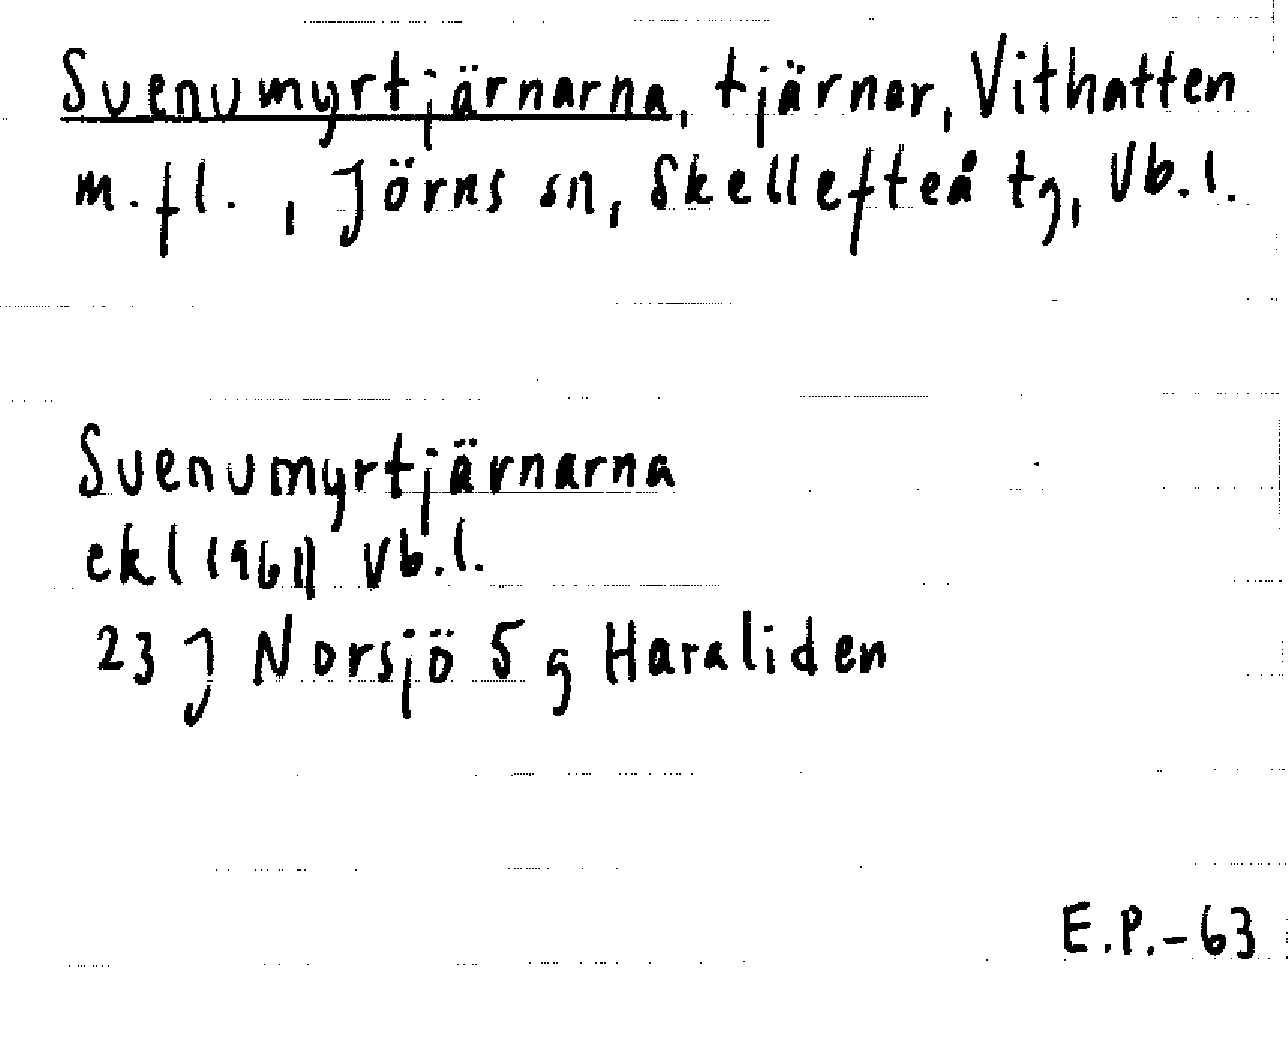 Svenumyrtjärnarna, tjärnar, Vithatten
m.fl., Jörns sn, Skellefteå tg, Vb.l.
Svenumyrtjärnarna
ekl (1961) Vb.l.
23 J Norsjö 5 g Haraliden
E.P.-63